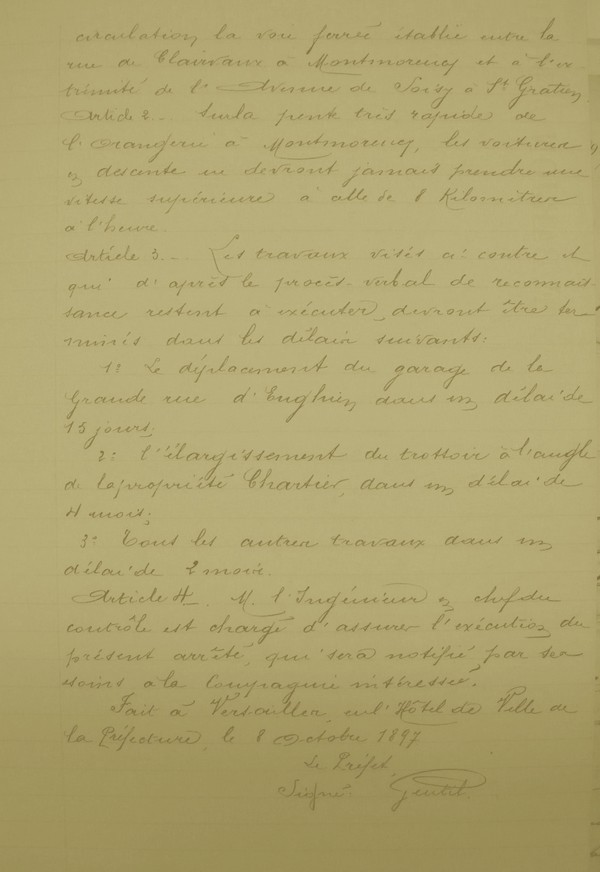 circulation, la voie ferrée établie entre la
rue de Clairvaux à Montmorency et à l'ex
trémité de l' Avenue de Soisy à St Gratien
Article 2 _ Sur la pente très rapide de
l'Orangerie à Montmorency, les voitures
en descente ne devront jamais prendre une
vitesse supérieure à celle de 8 Kilomètres
à l'heure.
Article 3 _ Les travaux visés ci-contre et
qui d'après le procès-verbal de reconnais
sance restent à exécuter, devront être ter
minés dans les délais suivants:
1º Le déplacement du garage de la
Grande rue d'Enghien dans un délai de
15 jours.
2º l'élargissement du trottoir à l'angle
de la propriété Chartier, dans un délai de
4 mois;
3º Tous les autres travaux dans un
délai de 2 mois.
Article 4 _ M. l'Ingénieur en chef du
contrôle est chargé d'assurer l'exécution du
présent arrêté, qui sera notifié par ses
soins à la Compagnie intéressée.
Fait à Versailles, en l'Hôtel de Ville de
la Préfecture, le 8 Octobre 1897
Le Préfet,
Signé: Gentil.